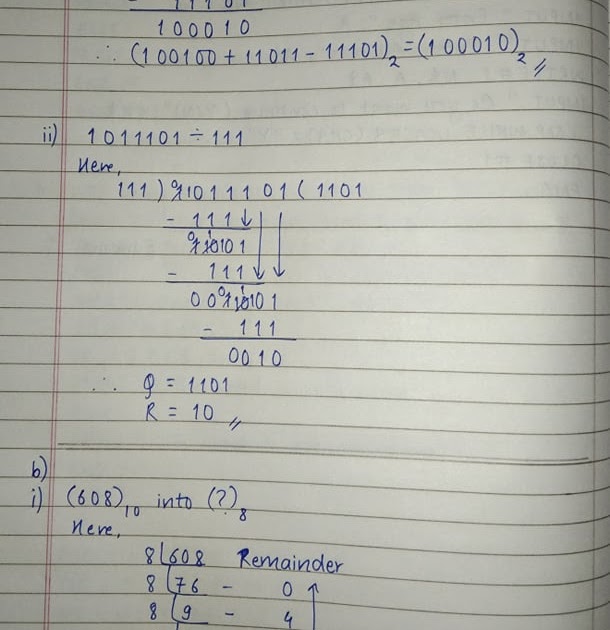 100010
∴ (100100 + 11011 - 11101)₂ = (100010)₂
ii) 1011101 ÷ 111
Here,
111 ) 1011101 ( 1101
- 111
- 111
- 111
0010
∴ Q = 1101
R = 10
b)
i) (608)₁₀ into (?)₈
Here,
8 608 Remainder
8 76 - 0
8 9 - 4